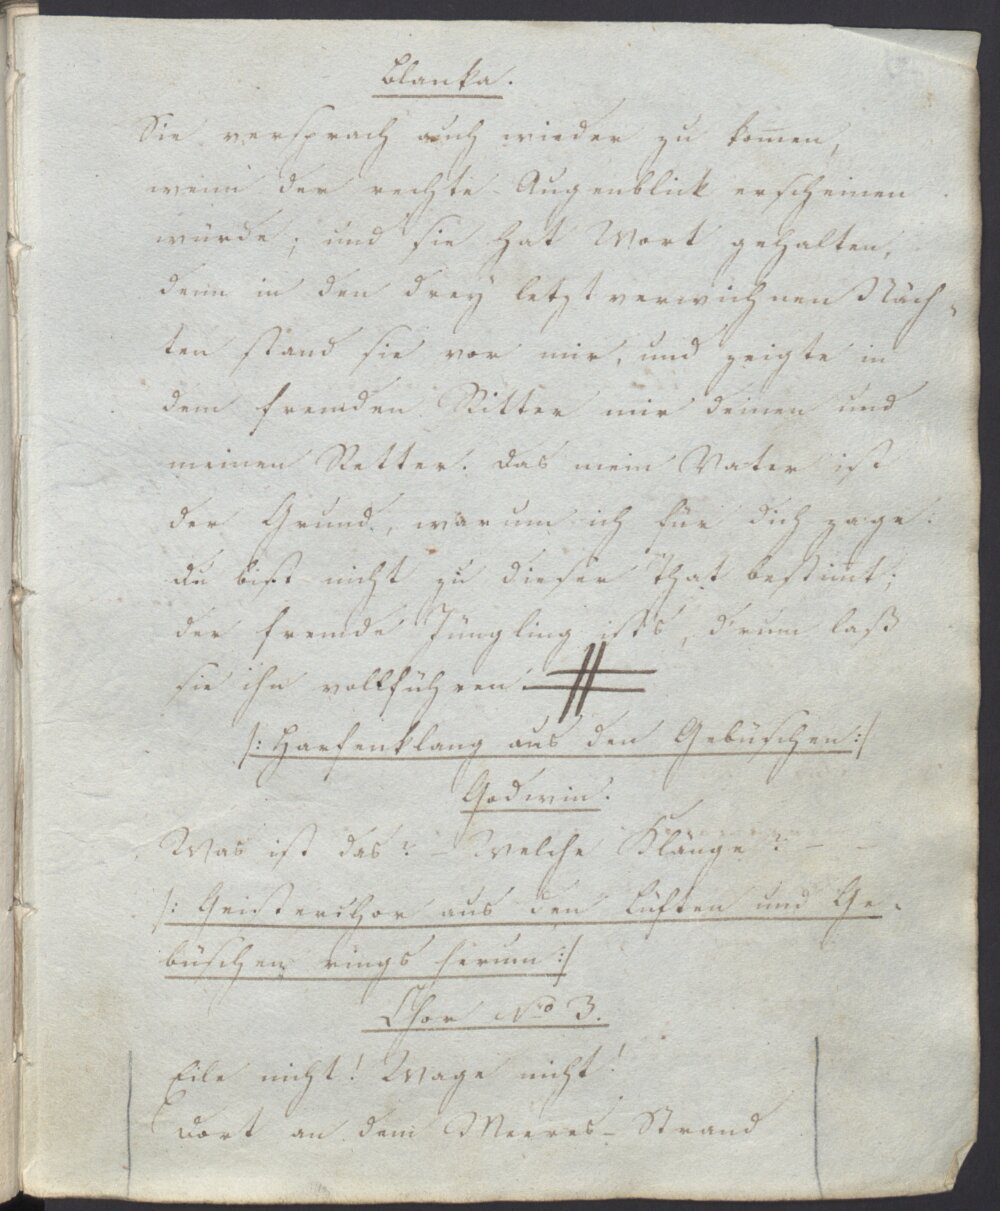 Blanka.
Sie versprach auch wieder zu kom̅en,
wenn der rechte Augenblick erscheinen
würde; und sie hat Wort gehalten,
denn in den drey letzt verwichnen Näch-
ten stand sie vor mir, und zeigte in
dem fremden Ritter mir deinen und
meinen Retter. Das mein Vater ist
der Grund, warum ich für dich zage.
Du bist nicht zu dieser That bestim̅t;
der fremde Jüngling ists, drum laß
sie ihn vollführen.
/: Harfenklang aus den Gebüschen :/
Godwin.
Was ist das? – Welche Klänge? – –
/: Geisterchor aus den Lüften und Ge-
büschen rings herum :/
Chor No 3.
Eile nicht! Wage nicht!
Dort an dem Meeres-Strand